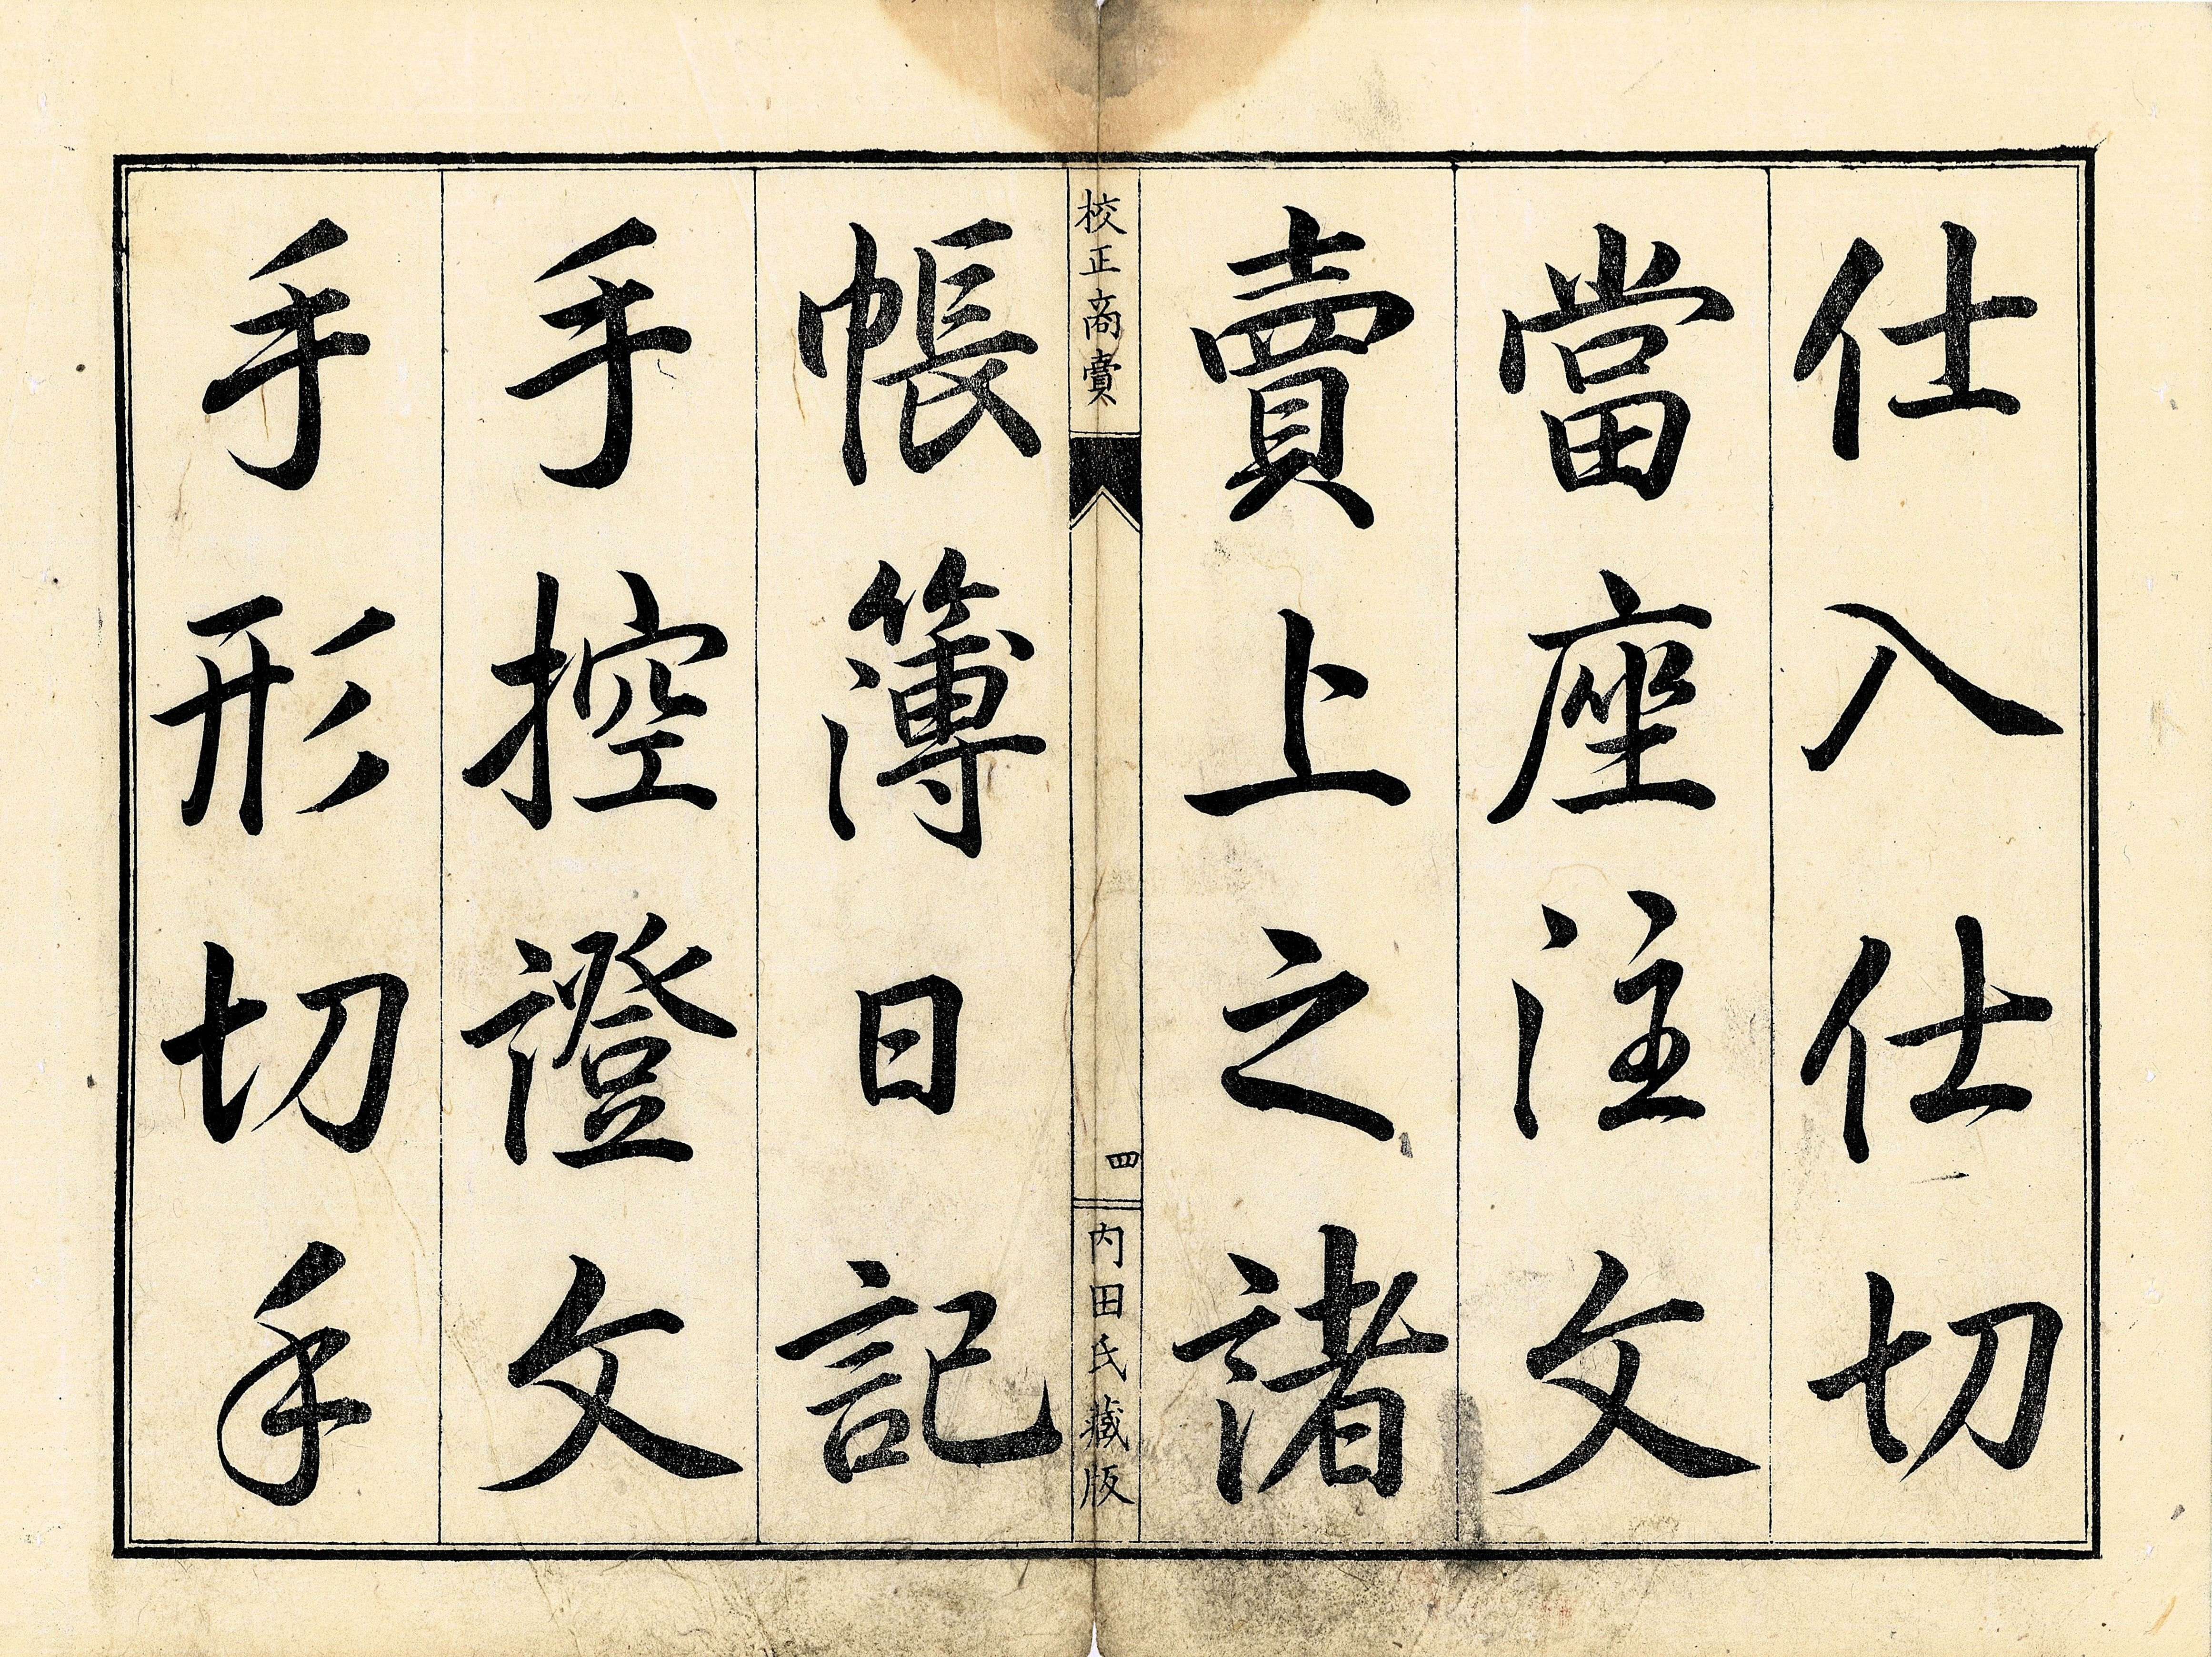 仕入仕切
當座注文
賣上之諸
校正商賣
四
内田氏藏版
帳簿日記
手控證文
手形切手